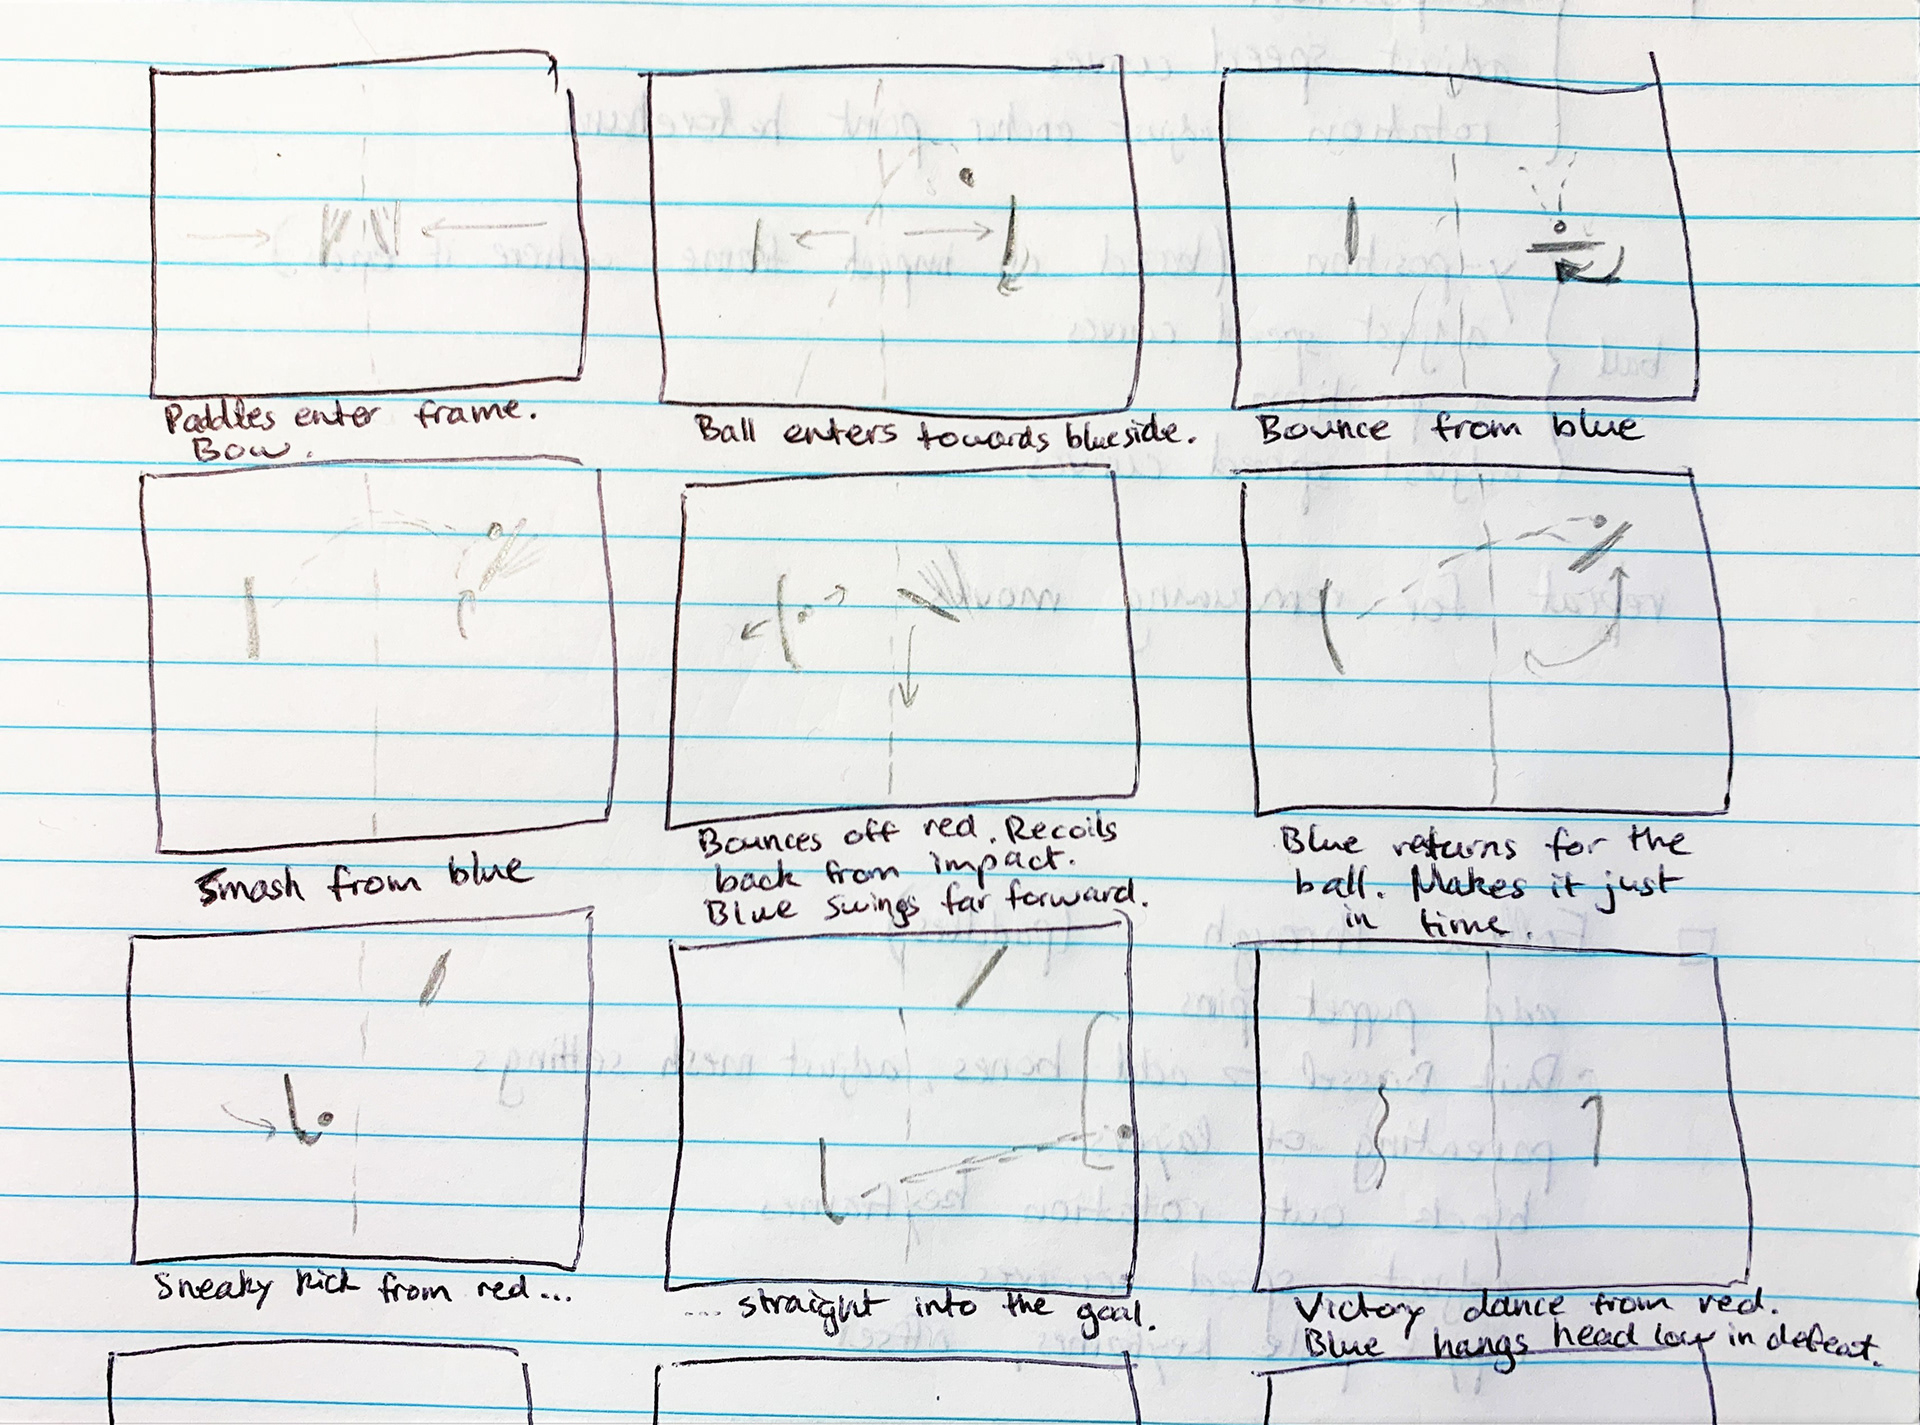 Paddles enter frame.
Bow.
Ball enters towards blue side.
Bounce from blue
Smash from blue
Bounces off red. Recoils
back from impact.
Blue swings far forward.
Blue returns for the
ball. Makes it just
in time.
Sneaky kick from red...
... straight into the goal.
Victory dance from red.
Blue hangs head low in defeat.